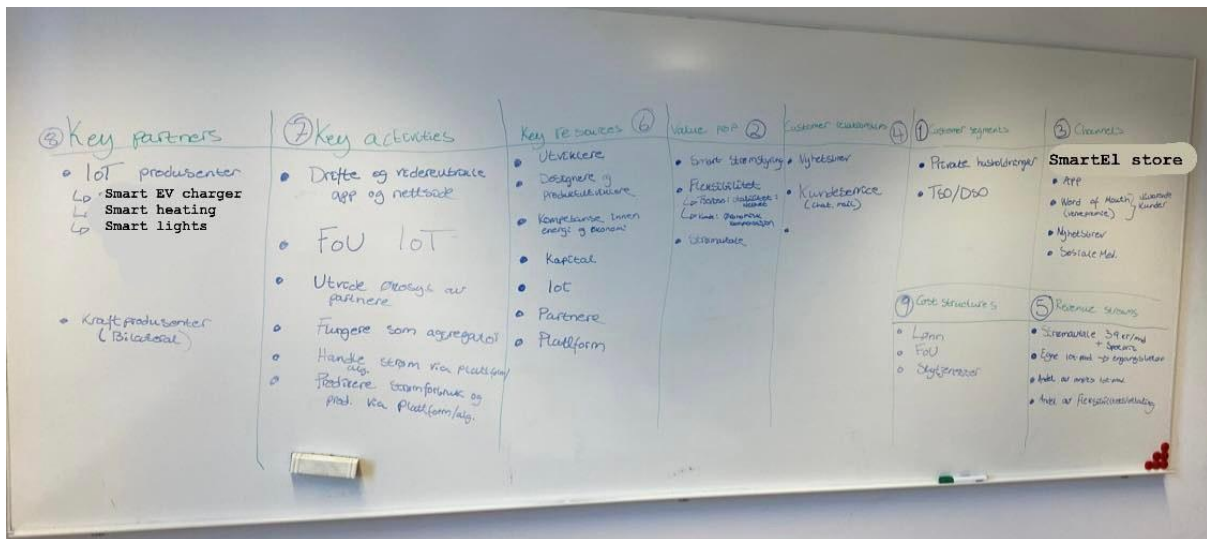 ⑧ Key partners
• IoT produsenter
↳ Smart EV charger
↳ Smart heating
↳ Smart lights
• Kraftprodusenter
(Bilateral)
⑦ Key activities
• Drifte og videreutvikle
app og nettside
• FoU IoT
• Utvide økosys av
partnere
• Fungere som aggregator
• Handle strøm via plattform/
alg.
• Predikere strømforbruk og
prod. via plattform/alg.
Key resources ⑥
• Utviklere
• Designere og
produktutviklere
• Kompetanse innen
energi og økonomi
• Kapital
• IoT
• Partnere
• Plattform
Value prop ②
• Smart strømstyring
• Fleksibilitet
• Strømavtale
Customer relationships ④
• Nyhetsbrev
• Kundeservice
(chat, mail)
•
① Customer segments
• Private husholdninger
• TSO/DSO
③ Channels
SmartEl store
• App
• Word of Mouth
(venner)
• Nyhetsbrev
• Sosiale Med.
⑨ Cost structures
• Lønn
• FoU
• Skytjenester
⑤ Revenue streams
• Strømavtale 39 kr/mnd
• Antel av
• Antel av